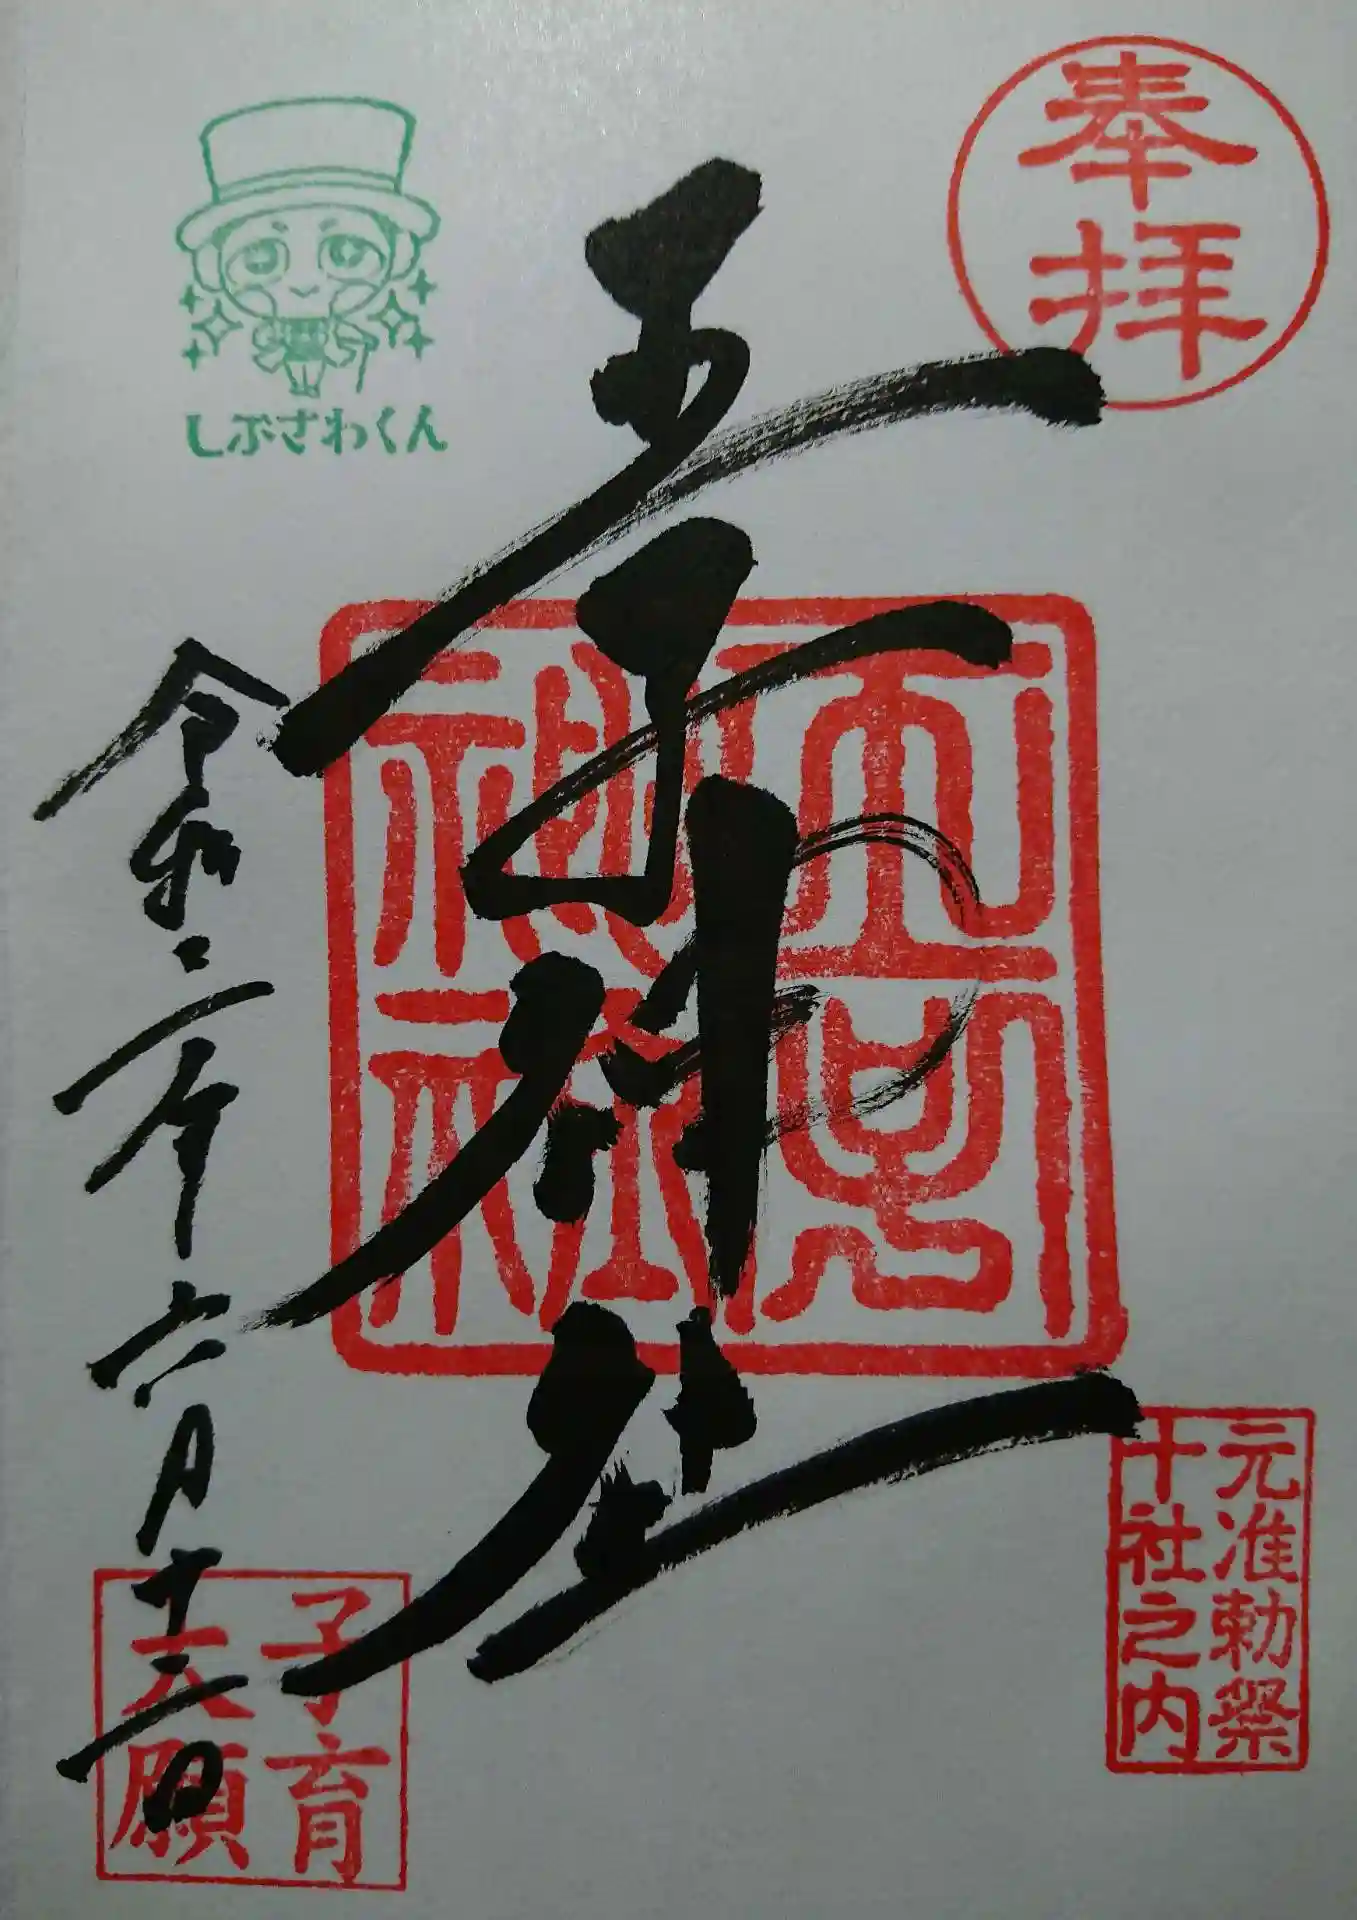 奉拝
しぶざわくん
王子神社
令和二年六月十三日
元准勅祭
十社之内
子育
大願